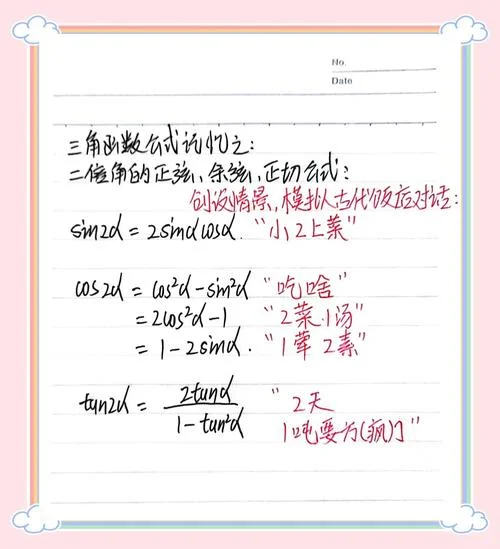 No.
Date
三角函数公式记忆之:
二倍角的正弦、余弦、正切公式:
创设情景,模拟古代饭店对话:
sin2α = 2sinαcosα. “小2上菜”
cos2α = cos²α-sin²α “吃啥”
=2cos²α-1 “2菜1汤”
=1-2sinα. “1荤2素”
tan2α = 2tanα / 1-tan²α “2天
1吨要方(疯)”